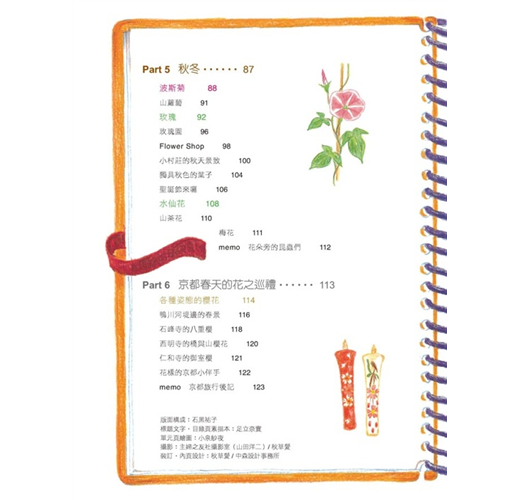 Part 5 秋冬 ・・・・・・ 87
波斯菊 88
山蘿蔔 91
玫瑰 92
玫瑰園 96
Flower Shop 98
小村莊的秋天景致 100
獨具秋色的葉子 104
聖誕節來囉 106
水仙花 108
山茶花 110
梅花 111
memo 花朵旁的昆蟲們 112
Part 6 京都春天的花之巡禮 ・・・・・・ 113
各種姿態的櫻花 114
鴨川河堤邊的春景 116
石峰寺的八重櫻 118
西明寺的橋與山櫻花 120
仁和寺的御室櫻 121
花樣的京都小伴手 122
memo 京都旅行後記 123
版面構成：石黑祐子
標題文字・目錄頁素描本：足立奈實
單元頁繪圖：小泉紗夜
攝影：主婦之友社攝影室（山田洋二）/ 秋草愛
裝訂・內頁設計：秋草愛 / 中森設計事務所